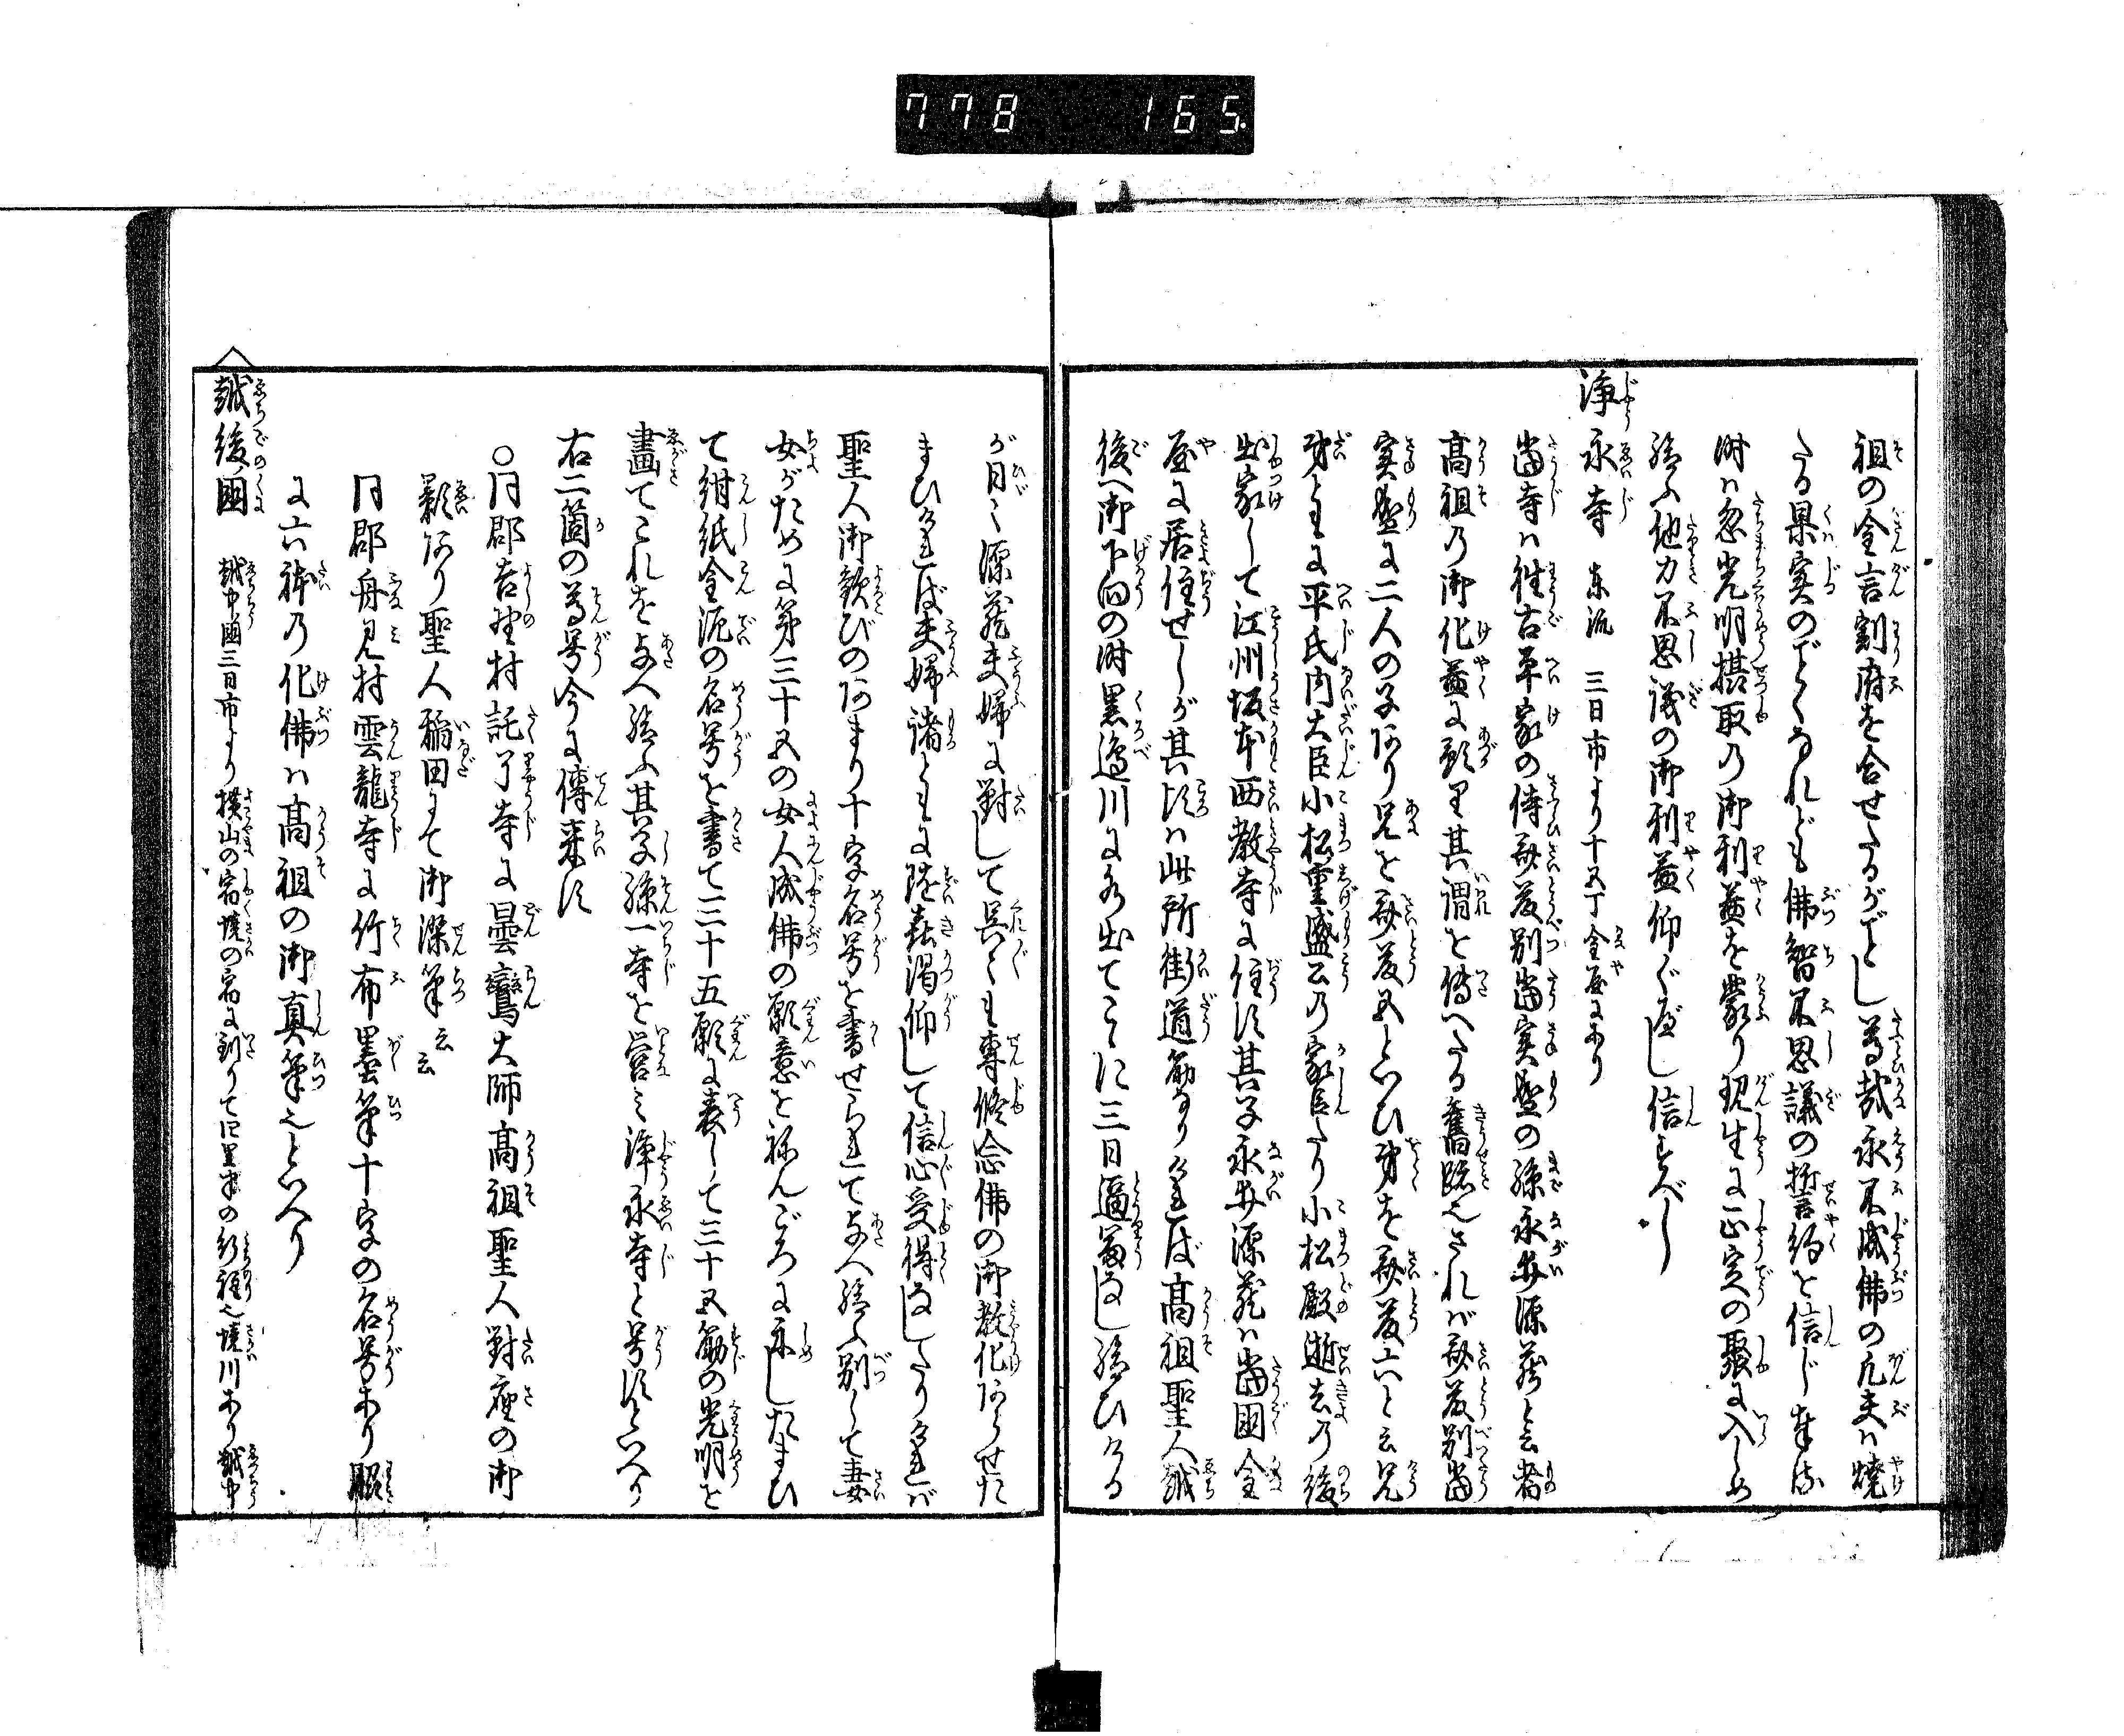 778 165.
祖の金言割府を合せたるがごとし尊哉永不成佛の凡夫ハ燒
たる果実のごとくなれども佛智不思議の誓約を信じ奉る
時ハ忽光明摂取の御利益を蒙り現生に正定の聚に入しめ
給ふ他力不思議の御利益仰ぐべし信ずべし
浄永寺 東流 三日市より十五丁金屋にあり
当寺ハ往古平家の侍斎藤別当実盛の孫永井源蔵と云者
高祖の御化益に預り其謂を傳へたる舊跡也されバ斎藤別当
実盛に二人の子あり兄を斎藤五といひ弟を斎藤六と云兄
弟ともに平氏内大臣小松重盛公の家臣たり小松殿逝去の後
出家して江州坂本西教寺に住す其子永井源蔵ハ当国金
屋に居住せしが其頃ハ此所街道筋なりければ高祖聖人越
後へ御下向の時黒邉川に水出てこゝに三日逼留なし給ひける
が日〻源蔵夫婦に對して具〻も専修念佛の御教化あらせた
まひければ夫婦諸ともに随喜渇仰して信心受得なしたりけれバ
聖人御歓びのあまり十字名号を書せられて与へ給ふ別して妻
女がために第三十五の女人成佛の願意を祢んごろに示したまひ
て紺紙金泥の名号を書て三十五願に表して三十五筋の光明を
畫てこれを与へ給ふ其子孫一寺を営み浄永寺と号すといへり
右二箇の尊号今に傳来す
○同郡吉野村託了寺に曇鸞大師高祖聖人對座の御
影あり聖人稲田にて御染筆云云
同郡舟見村雲龍寺に竹布墨筆十字の名号あり脇
に六体の化佛ハ高祖の御真筆也といへり
越後國 越中國三日市より横山の宿境の宿に到りて四里半の行程也境川あり越中